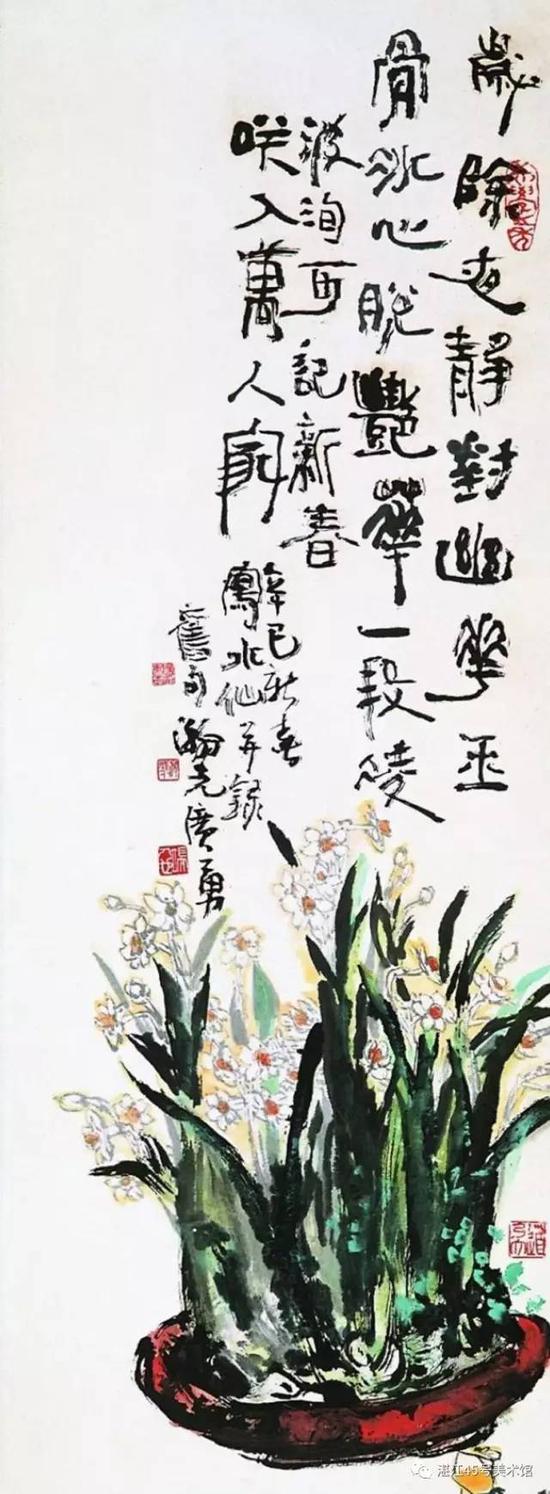 歲除夜靜對幽花玉
骨冰心脫艷華一段凌
波洵可記新春
咲入萬人家
辛巳新春
寫水仙并錄
舊句瀚廣勇
湛江45号美术馆